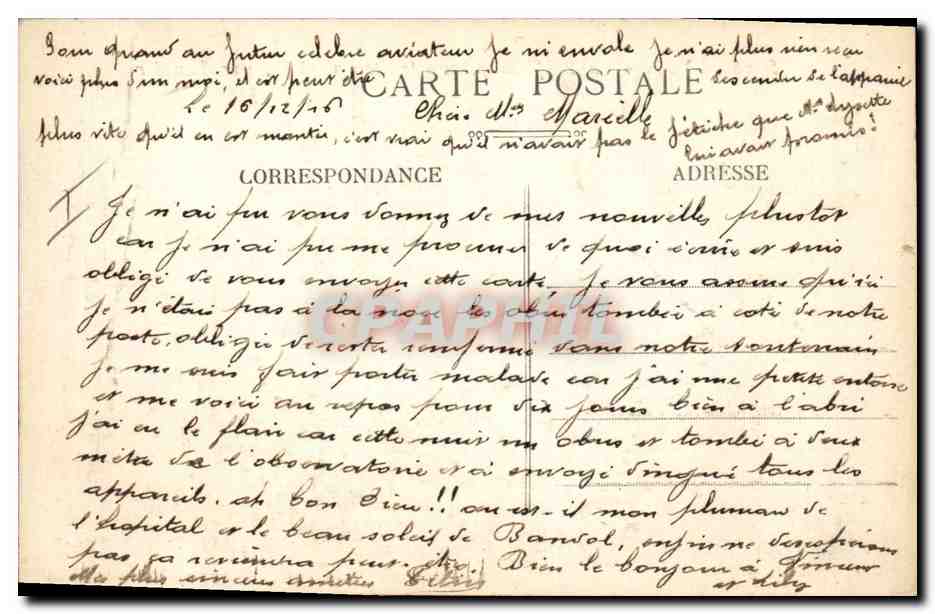 Pour quand au futur célèbre aviateur je m'envole je n'ai plus rien reçu
voici plus d'un moi, et est peut être descendu de l'appareil
CARTE POSTALE
Le 16/12/16
Chère Marcelle
plus vite qu'il en est monté, c'est vrai qu'il n'avait pas le fétiche que
lui avait promis!
CORRESPONDANCE
ADRESSE
Je n'ai pu vous donnez de mes nouvelles plustot
car je n'ai pu me procurer de quoi écrire et suis
obligé de vous envoyer cette carte. Je vous assure qu'ici
je n'étais pas à la noce les obus tombé à coté de notre
poste, obligé de rester renfermé dans notre souterrain
Je me suis fait porter malade car j'ai une petite entorse
et me voici au repos pour dix jours bien à l'abri
j'ai eu le flair car cette nuit un obus et tombé à deux
mètre de l'observatoire et à envoyé dingué tous les
appareils. ah bon Dieu!! ou est-il mon plumau de
l'hopital et le beau soleil de Bandol, enfin ne desespérons
pas ça reviendra peut-être. Bien le bonjour à
et
Mes plus sincères amitiés
CPAPHIL